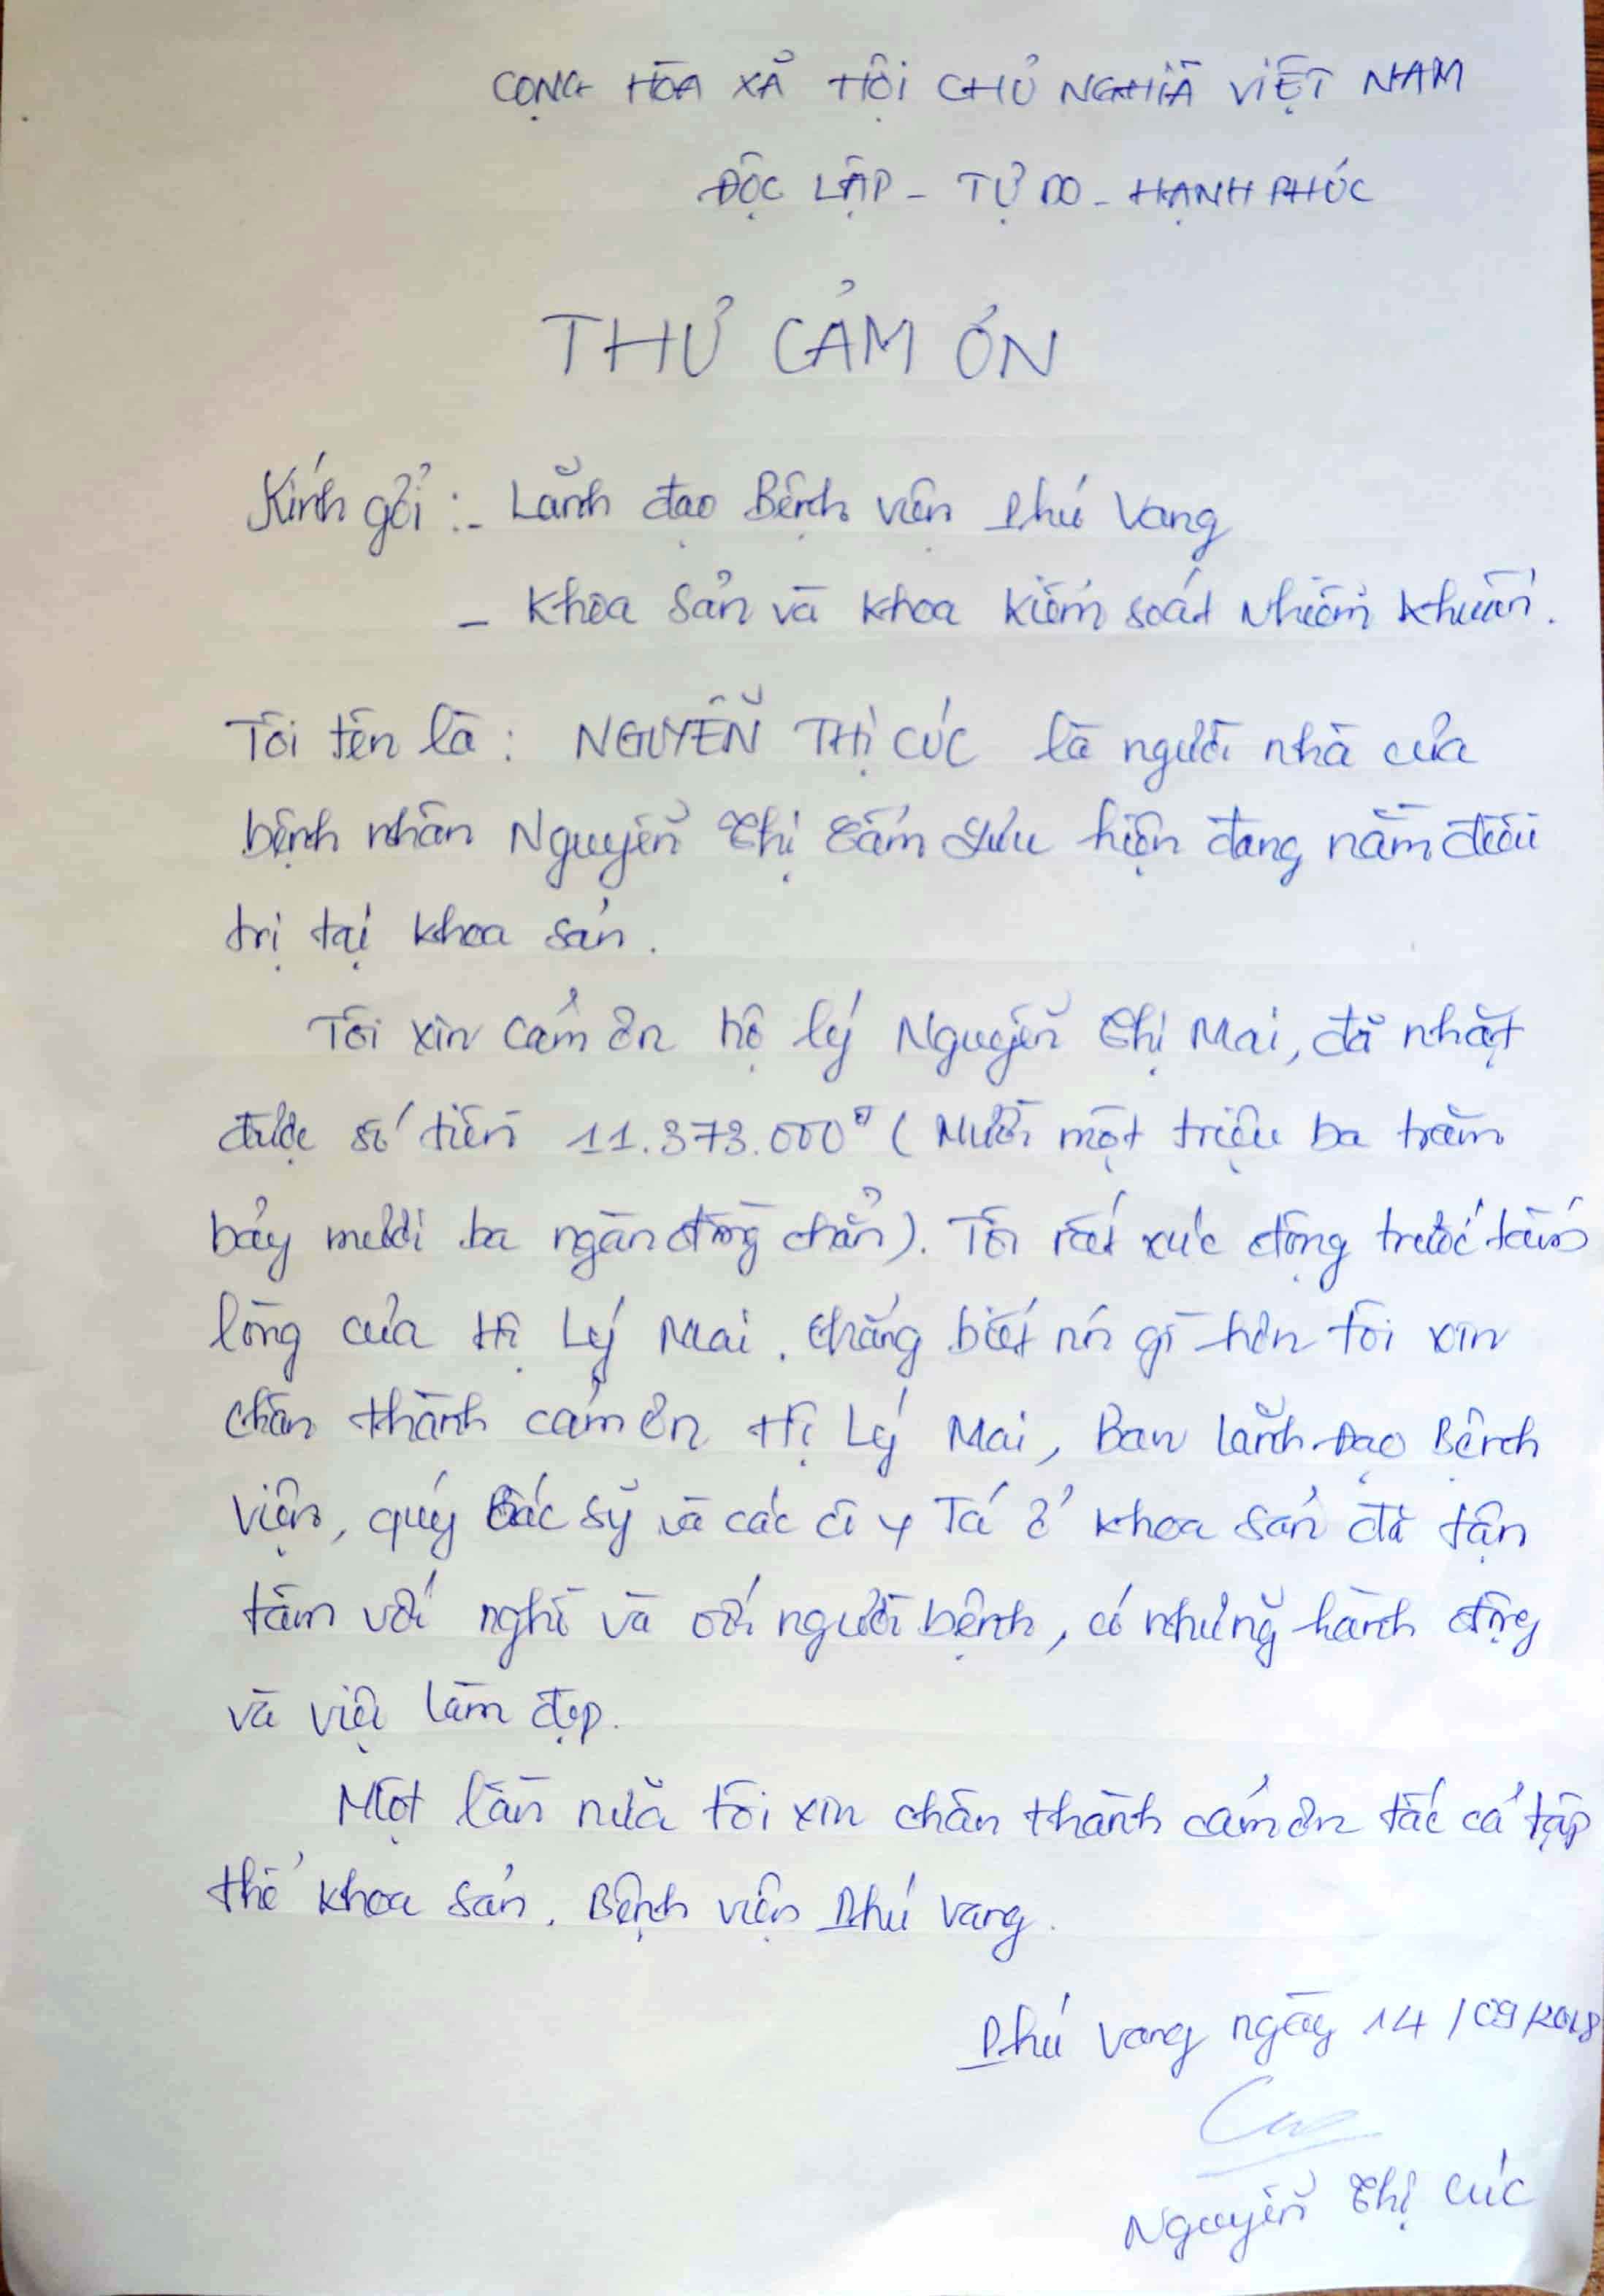 CỘNG HÒA XÃ HỘI CHỦ NGHĨA VIỆT NAM
ĐỘC LẬP - TỰ DO - HẠNH PHÚC
THƯ CẢM ƠN
Kính gởi :- Lãnh đạo Bệnh viện Phú Vang
- Khoa Sản và khoa Kiểm soát Nhiễm khuẩn.
Tôi tên là : NGUYỄN THỊ CÚC là người nhà của
bệnh nhân Nguyễn Thị Cẩm Lưu hiện đang nằm điều
trị tại khoa sản.
Tôi xin cảm ơn hộ lý Nguyễn Thị Mai, đã nhặt
được số tiền 11.373.000đ ( Mười một triệu ba trăm
bảy mươi ba ngàn đồng chẳn). Tôi rất xúc động trước tấm
lòng của Hộ Lý Mai. Chẳng biết nói gì hơn tôi xin
chân thành cảm ơn Hộ Lý Mai, Ban lãnh Đạo Bệnh
viện, quý Bác sỹ và các cô y Tá ở khoa sản đã tận
tâm với nghề và với người bệnh, có những hành động
và việc làm đẹp.
Một lần nữa tôi xin chân thành cảm ơn tấc cả tập
thể khoa sản. Bệnh viện Phú Vang.
Phú Vang ngày 14/09/2018
Cúc
Nguyễn Thị Cúc